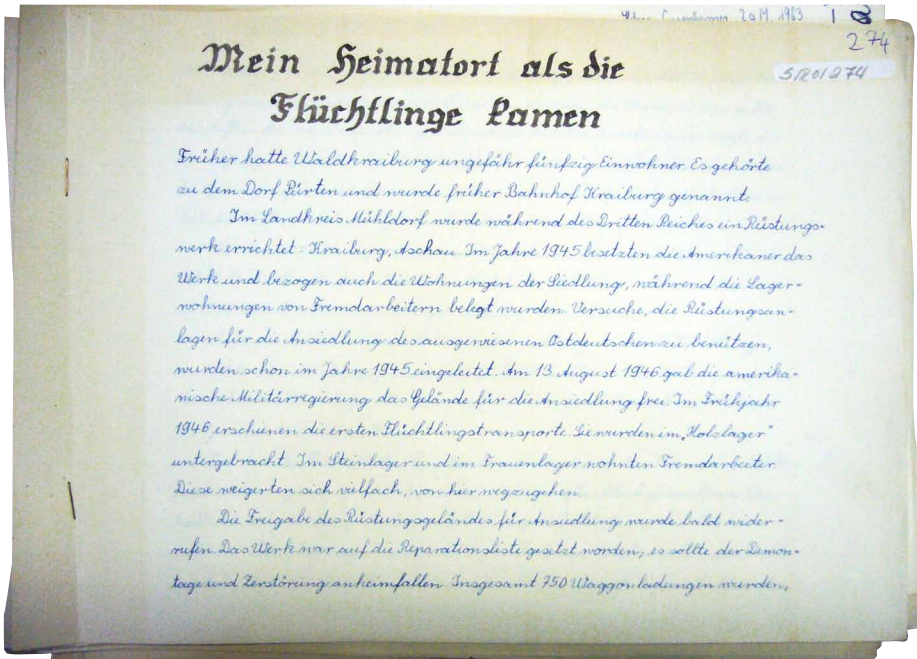 2aM. 1963
1
274
S/20/274
Mein Heimatort als die
Flüchtlinge kamen
Früher hatte Waldkraiburg ungefähr fünfzig Einwohner. Es gehörte
zu dem Dorf Pürten und wurde früher Bahnhof Kraiburg genannt.
Im Landkreis Mühldorf wurde während des Dritten Reiches ein Rüstungs-
werk errichtet: Kraiburg, Aschau. Im Jahre 1945 besetzten die Amerikaner das
Werk und bezogen auch die Wohnungen der Siedlung, während die Lager-
wohnungen von Fremdarbeitern belegt wurden. Versuche, die Rüstungsan-
lagen für die Ansiedlung des ausgewiesenen Ostdeutschen zu benützen,
wurden schon im Jahre 1945 eingeleitet. Am 13. August 1946 gab die amerika-
nische Militärregierung das Gelände für die Ansiedlung frei. Im Frühjahr
1946 erschienen die ersten Flüchtlingstransporte. Sie wurden im „Holzlager"
untergebracht. Im Steinlager und im Frauenlager wohnten Fremdarbeiter.
Diese weigerten sich vielfach, von hier wegzugehen.
Die Freigabe des Rüstungsgeländes für Ansiedlung wurde bald wider-
rufen. Das Werk war auf die Reparationsliste gesetzt worden, es sollte der Demon-
tage und Zerstörung anheimfallen. Insgesamt 750 Waggonladungen wurden,